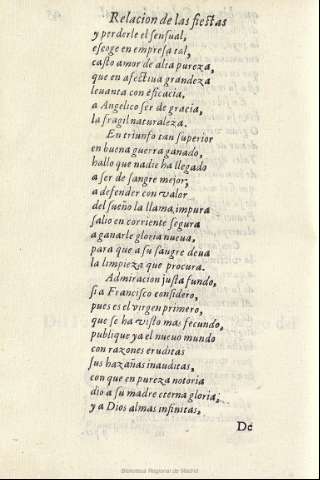 Relacion de las fiestas
y perderle el sensual,
escoge en empresa tal,
casto amor de alta pureza,
que en afectiua grandeza
leuanta con eficacia,
a Angelico ser de gracia,
la fragil naturaleza.
En triunfo tan superior
en buena guerra ganado,
hallo que nadie ha llegado
a ser de sangre mejor;
a defender con valor
del sueño la llama impura
salio en corriente segura
a ganarle gloria nueua,
para que a su sangre deua
la limpieza que procura.
Admiracion justa fundo,
si a Francisco considero,
pues es el virgen primero,
que se ha visto mas fecundo,
publique ya el nueuo mundo
con razones eruditas
sus hazañas inauditas,
con que en pureza notoria
dio a su madre eterna gloria,
y a Dios almas infinitas,
De
Biblioteca Regional de Madrid